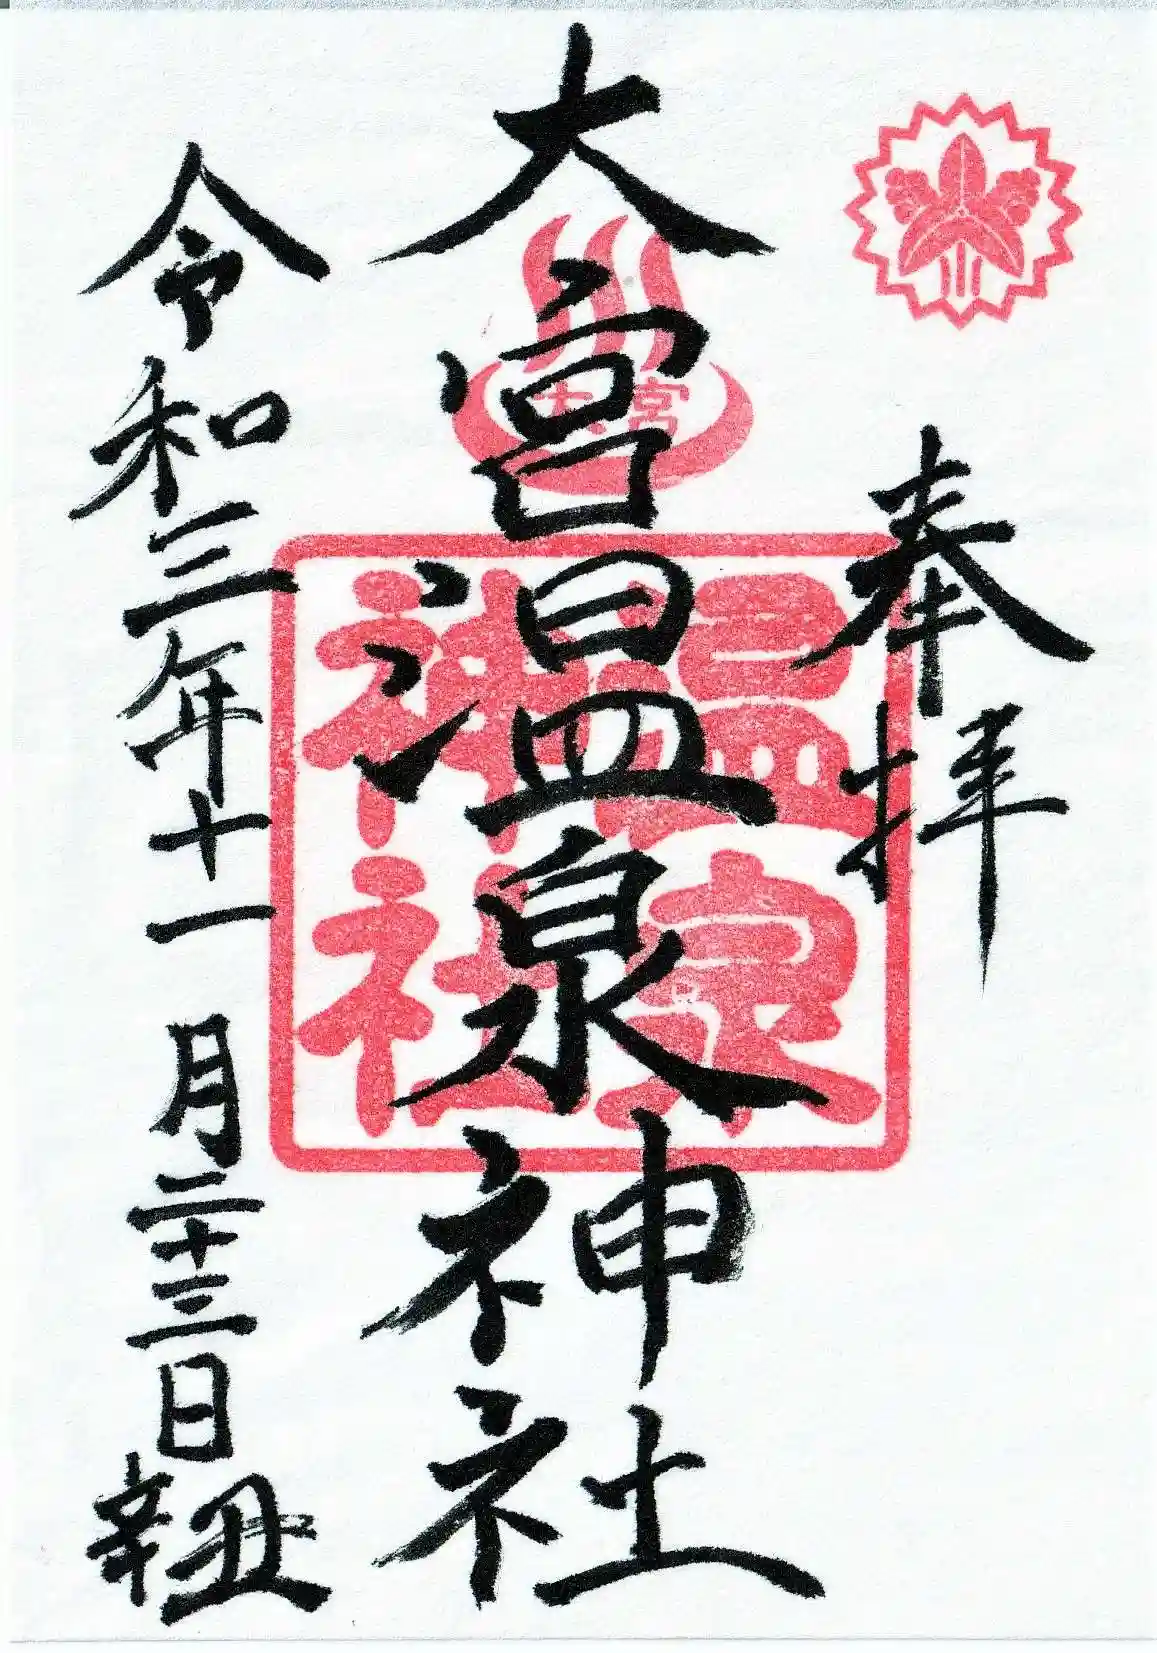 奉拝
大宮温泉神社
大宮
温泉
神社
令和三年十一月二十三日 辛丑